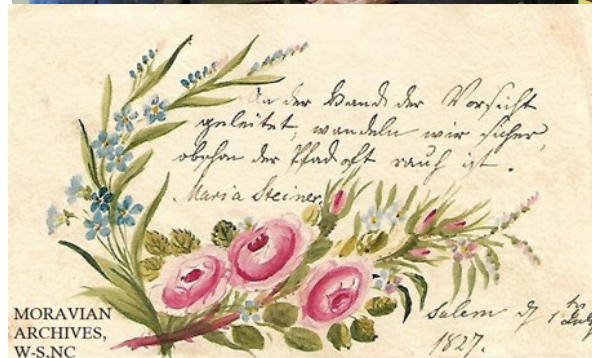 An der Hand der Vorsicht
geleitet, wandeln wir sicher,
obschon der Pfad oft rauh ist.
Maria Steiner
Salem
1827.
MORAVIAN
ARCHIVES,
W-S, NC